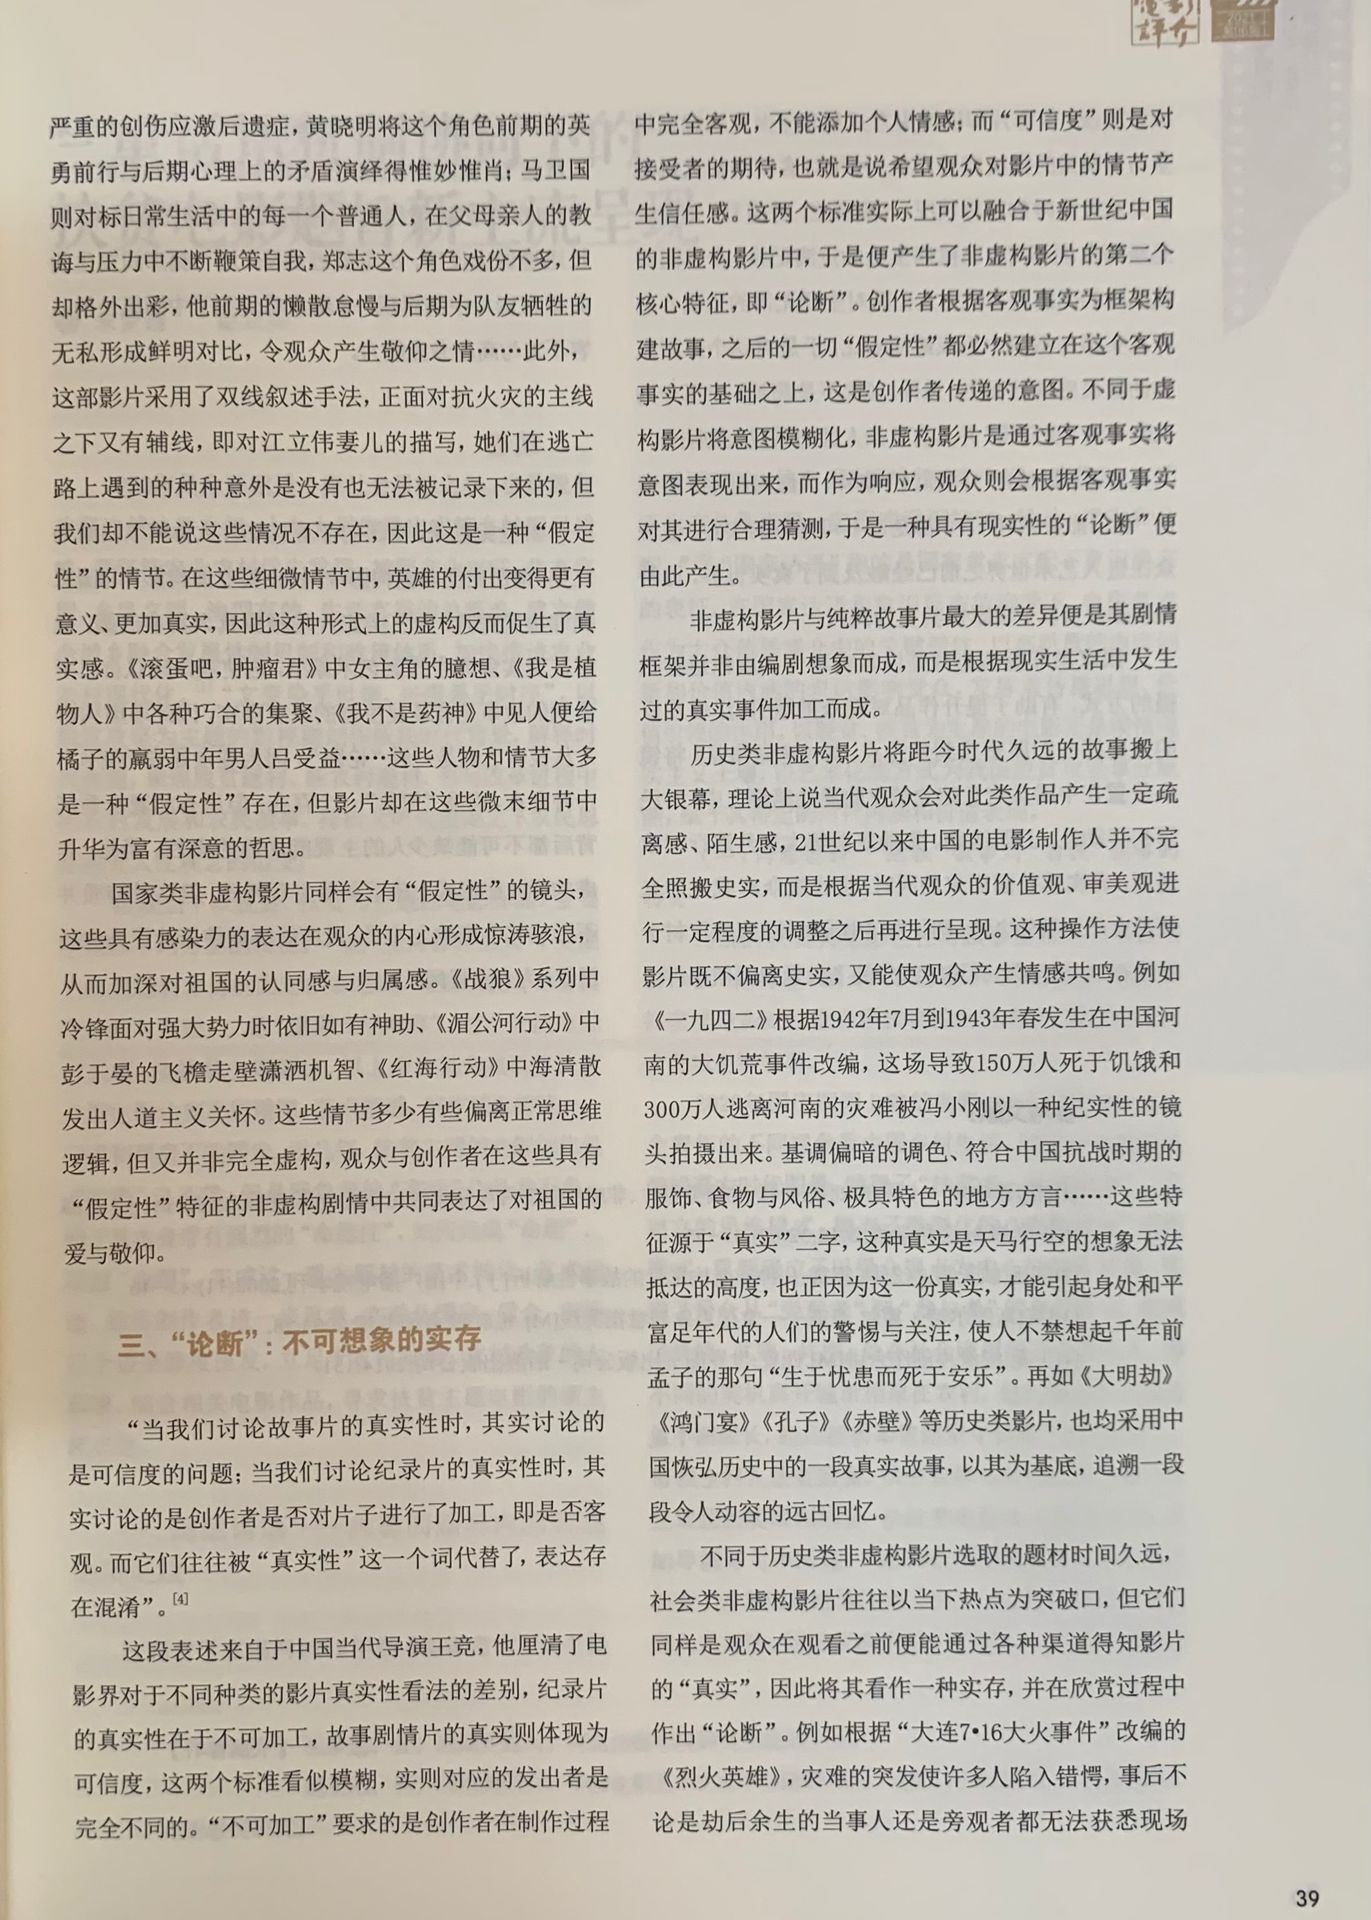 电影
评介
严重的创伤应激后遗症，黄晓明将这个角色前期的英
勇前行与后期心理上的矛盾演绎得惟妙惟肖；马卫国
则对标日常生活中的每一个普通人，在父母亲人的教
诲与压力中不断鞭策自我，郑志这个角色戏份不多，但
却格外出彩，他前期的懒散怠慢与后期为队友牺牲的
无私形成鲜明对比，令观众产生敬仰之情……此外，
这部影片采用了双线叙述手法，正面对抗火灾的主线
之下又有辅线，即对江立伟妻儿的描写，她们在逃亡
路上遇到的种种意外是没有也无法被记录下来的，但
我们却不能说这些情况不存在，因此这是一种“假定
性”的情节。在这些细微情节中，英雄的付出变得更有
意义、更加真实，因此这种形式上的虚构反而促生了真
实感。《滚蛋吧，肿瘤君》中女主角的臆想、《我是植
物人》中各种巧合的集聚、《我不是药神》中见人便给
橘子的羸弱中年男人吕受益……这些人物和情节大多
是一种“假定性”存在，但影片却在这些微末细节中
升华为富有深意的哲思。
国家类非虚构影片同样会有“假定性”的镜头，
这些具有感染力的表达在观众的内心形成惊涛骇浪，
从而加深对祖国的认同感与归属感。《战狼》系列中
冷锋面对强大势力时依旧如有神助、《湄公河行动》中
彭于晏的飞檐走壁潇洒机智、《红海行动》中海清散
发出人道主义关怀。这些情节多少有些偏离正常思维
逻辑，但又并非完全虚构，观众与创作者在这些具有
“假定性”特征的非虚构剧情中共同表达了对祖国的
爱与敬仰。
三、“论断”：不可想象的实存
“当我们讨论故事片的真实性时，其实讨论的
是可信度的问题；当我们讨论纪录片的真实性时，其
实讨论的是创作者是否对片子进行了加工，即是否客
观。而它们往往被“真实性”这一个词代替了，表达存
在混淆”。[4]
这段表述来自于中国当代导演王竞，他厘清了电
影界对于不同种类的影片真实性看法的差别，纪录片
的真实性在于不可加工，故事剧情片的真实则体现为
可信度，这两个标准看似模糊，实则对应的发出者是
完全不同的。“不可加工”要求的是创作者在制作过程
中完全客观，不能添加个人情感；而“可信度”则是对
接受者的期待，也就是说希望观众对影片中的情节产
生信任感。这两个标准实际上可以融合于新世纪中国
的非虚构影片中，于是便产生了非虚构影片的第二个
核心特征，即“论断”。创作者根据客观事实为框架构
建故事，之后的一切“假定性”都必然建立在这个客观
事实的基础之上，这是创作者传递的意图。不同于虚
构影片将意图模糊化，非虚构影片是通过客观事实将
意图表现出来，而作为响应，观众则会根据客观事实
对其进行合理猜测，于是一种具有现实性的“论断”便
由此产生。
非虚构影片与纯粹故事片最大的差异便是其剧情
框架并非由编剧想象而成，而是根据现实生活中发生
过的真实事件加工而成。
历史类非虚构影片将距今时代久远的故事搬上
大银幕，理论上说当代观众会对此类作品产生一定疏
离感、陌生感，21世纪以来中国的电影制作人并不完
全照搬史实，而是根据当代观众的价值观、审美观进
行一定程度的调整之后再进行呈现。这种操作方法使
影片既不偏离史实，又能使观众产生情感共鸣。例如
《一九四二》根据1942年7月到1943年春发生在中国河
南的大饥荒事件改编，这场导致150万人死于饥饿和
300万人逃离河南的灾难被冯小刚以一种纪实性的镜
头拍摄出来。基调偏暗的调色、符合中国抗战时期的
服饰、食物与风俗、极具特色的地方方言……这些特
征源于“真实”二字，这种真实是天马行空的想象无法
抵达的高度，也正因为这一份真实，才能引起身处和平
富足年代的人们的警惕与关注，使人不禁想起千年前
孟子的那句“生于忧患而死于安乐”。再如《大明劫》
《鸿门宴》《孔子》《赤壁》等历史类影片，也均采用中
国恢弘历史中的一段真实故事，以其为基底，追溯一段
段令人动容的远古回忆。
不同于历史类非虚构影片选取的题材时间久远，
社会类非虚构影片往往以当下热点为突破口，但它们
同样是观众在观看之前便能通过各种渠道得知影片
的“真实”，因此将其看作一种实存，并在欣赏过程中
作出“论断”。例如根据“大连7•16大火事件”改编的
《烈火英雄》，灾难的突发使许多人陷入错愕，事后不
论是劫后余生的当事人还是旁观者都无法获悉现场
39